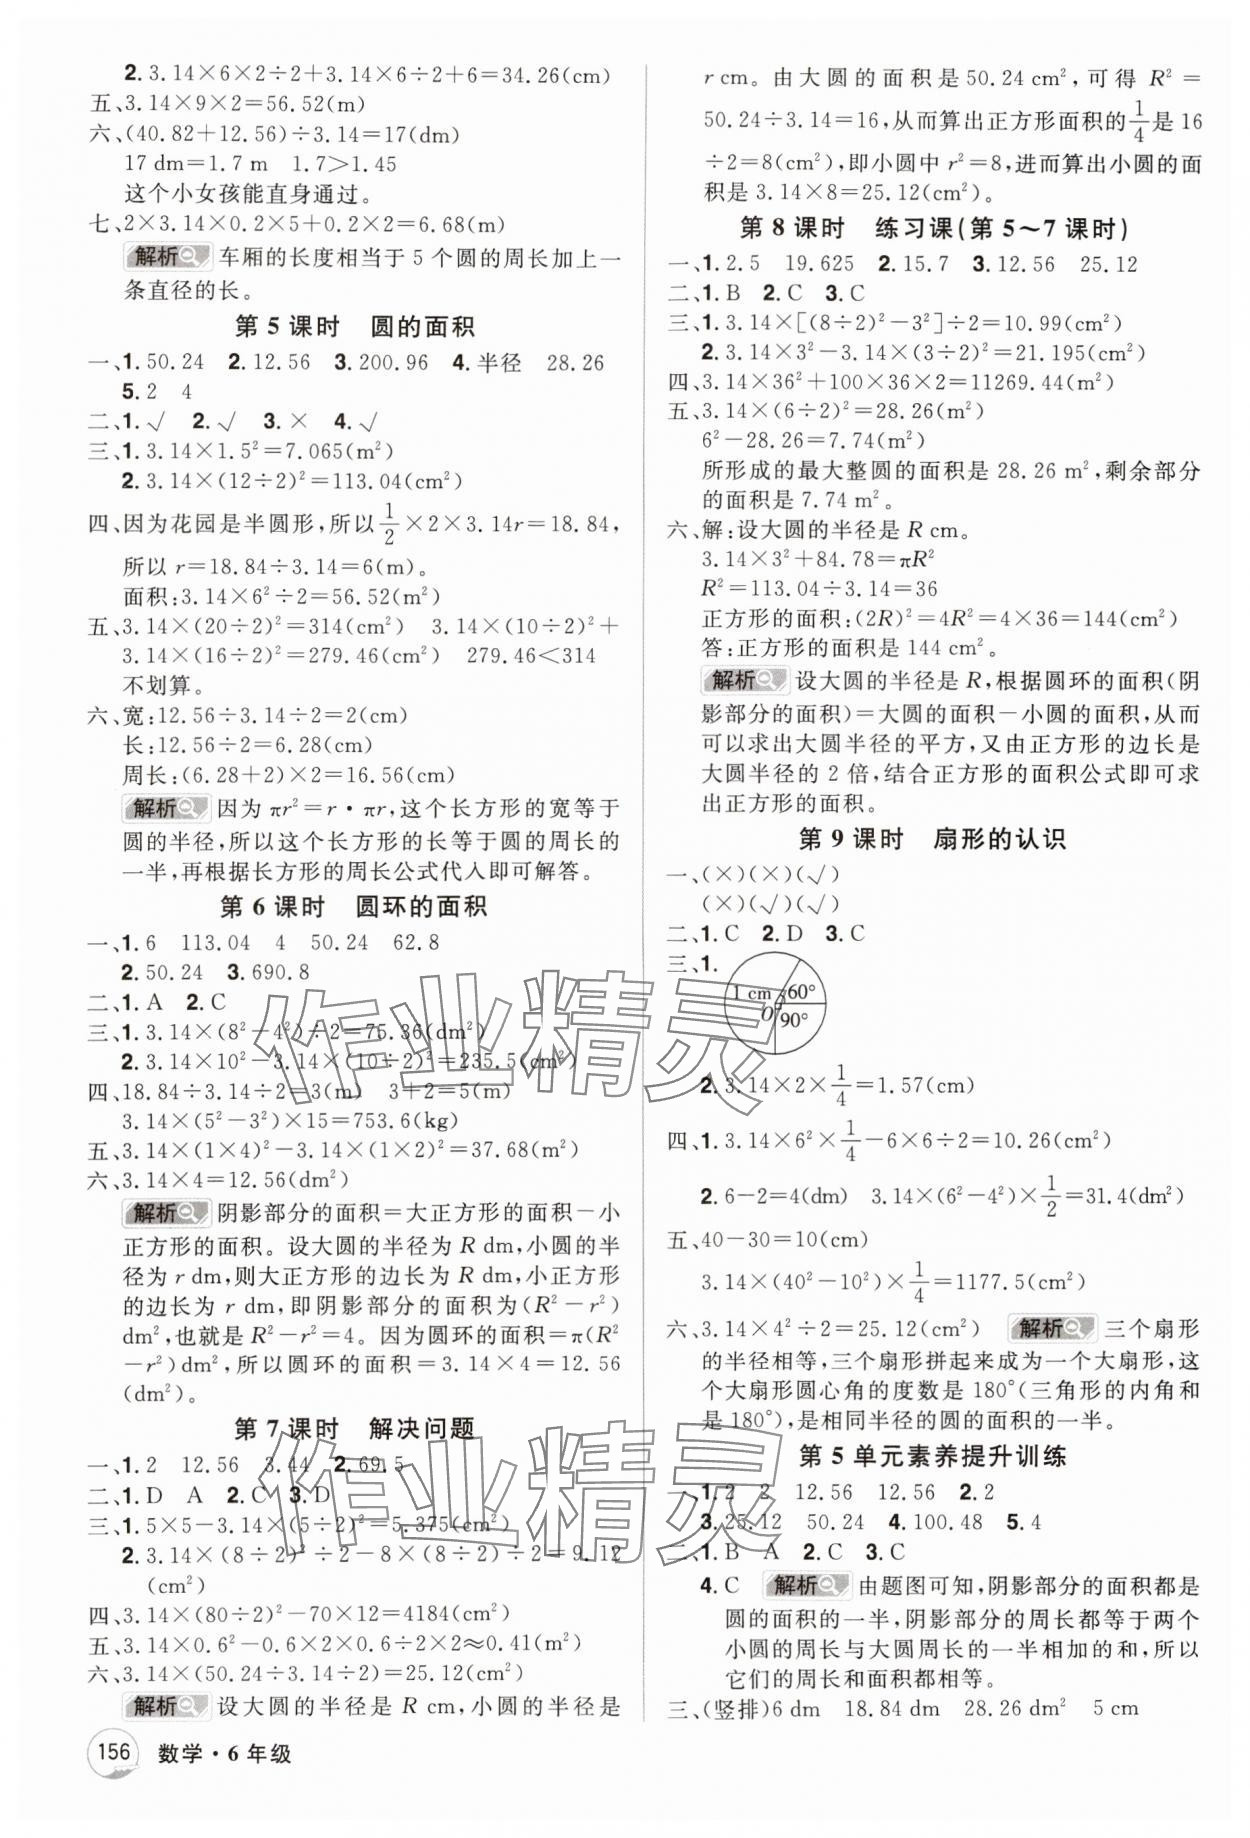 2.3.14×6×2÷2+3.14×6÷2+6=34.26(cm)
五、3.14×9×2=56.52(m)
六、(40.82+12.56)÷3.14=17(dm)
17 dm=1.7 m 1.7>1.45
这个小女孩能直身通过。
七、2×3.14×0.2×5+0.2×2=6.68(m)
解析 车厢的长度相当于 5 个圆的周长加上一
条直径的长。
第 5 课时 圆的面积
一、1.50.24 2.12.56 3.200.96 4.半径 28.26
5.2 4
二、1.√ 2.√ 3.× 4.√
三、1.3.14×1.5²=7.065(m²)
2.3.14×(12÷2)²=113.04(cm²)
四、因为花园是半圆形,所以1/2×2×3.14r=18.84,
所以 r=18.84÷3.14=6(m)。
面积:3.14×6²÷2=56.52(m²)
五、3.14×(20÷2)²=314(cm²) 3.14×(10÷2)²+
3.14×(16÷2)²=279.46(cm²) 279.46<314
不划算。
六、宽:12.56÷3.14÷2=2(cm)
长:12.56÷2=6.28(cm)
周长:(6.28+2)×2=16.56(cm)
解析 因为 πr²=r·πr,这个长方形的宽等于
圆的半径,所以这个长方形的长等于圆的周长的
一半,再根据长方形的周长公式代入即可解答。
第 6 课时 圆环的面积
一、1.6 113.04 4 50.24 62.8
2.50.24 3.690.8
二、1.A 2.C
三、1.3.14×(8²-4²)÷2=75.36(dm²)
2.3.14×10²-3.14×(10÷2)²=235.5(cm²)
四、18.84÷3.14÷2=3(m) 3+2=5(m)
3.14×(5²-3²)×15=753.6(kg)
五、3.14×(1×4)²-3.14×(1×2)²=37.68(m²)
六、3.14×4=12.56(dm²)
解析 阴影部分的面积=大正方形的面积-小
正方形的面积。设大圆的半径为 R dm,小圆的半
径为 r dm,则大正方形的边长为 R dm,小正方形
的边长为 r dm,即阴影部分的面积为(R²-r²)
dm²,也就是 R²-r²=4。因为圆环的面积=π(R²
-r²)dm²,所以圆环的面积=3.14×4=12.56
(dm²)。
第 7 课时 解决问题
一、1.2 12.56 3.44 2.69.5
二、1.D A 2.C 3.D
三、1.5×5-3.14×(5÷2)²=5.375(cm²)
2.3.14×(8÷2)²÷2-8×(8÷2)÷2=9.12
(cm²)
四、3.14×(80÷2)²-70×12=4184(cm²)
五、3.14×0.6²-0.6×0.6÷2×2≈0.41(m²)
六、3.14×(50.24÷3.14÷2)=25.12(cm²)
解析 设大圆的半径是 R cm,小圆的半径是
156 数学·6 年级
r cm。由大圆的面积是 50.24 cm²,可得 R²=
50.24÷3.14=16,从而算出正方形面积的1/4是 16
÷2=8(cm²),即小圆中 r²=8,进而算出小圆的面
积是 3.14×8=25.12(cm²)。
第 8 课时 练习课(第 5~7 课时)
一、1.2.5 19.625 2.15.7 3.12.56 25.12
二、1.B 2.C 3.C
三、1.3.14×[(8÷2)²-3²]÷2=10.99(cm²)
2.3.14×3²-3.14×(3÷2)²=21.195(cm²)
四、3.14×36²+100×36×2=11269.44(m²)
五、3.14×(6÷2)²=28.26(m²)
6²-28.26=7.74(m²)
所形成的最大整圆的面积是 28.26 m²,剩余部分
的面积是 7.74 m²。
六、解:设大圆的半径是 R cm。
3.14×3²+84.78=πR²
R²=113.04÷3.14=36
正方形的面积:(2R)²=4R²=4×36=144(cm²)
答:正方形的面积是 144 cm²。
解析 设大圆的半径是 R,根据圆环的面积(阴
影部分的面积)=大圆的面积-小圆的面积,从而
可以求出大圆半径的平方,又由正方形的边长是
大圆半径的 2 倍,结合正方形的面积公式即可求
出正方形的面积。
第 9 课时 扇形的认识
一、(×)(×)(√)
(×)(√)(√)
二、1.C 2.D 3.C
三、1.
1 cm 60°
O 90°
2.3.14×2×1/4=1.57(cm)
四、1.3.14×6²×1/4-6×6÷2=10.26(cm²)
2.6-2=4(dm) 3.14×(6²-4²)×1/2=31.4(dm²)
五、40-30=10(cm)
3.14×(40²-10²)×1/4=1177.5(cm²)
六、3.14×4²÷2=25.12(cm²) 解析 三个扇形
的半径相等,三个扇形拼起来成为一个大扇形,这
个大扇形圆心角的度数是 180°(三角形的内角和
是 180°),是相同半径的圆的面积的一半。
第 5 单元素养提升训练
一、1.2 2 12.56 12.56 2.2
3.25.12 50.24 4.100.48 5.4
二、1.B A 2.C 3.C
4.C 解析 由题图可知,阴影部分的面积都是
圆的面积的一半,阴影部分的周长都等于两个
小圆的周长与大圆周长的一半相加的和,所以
它们的周长和面积都相等。
三、(竖排)6 dm 18.84 dm 28.26 dm² 5 cm
作业精灵
作业精灵